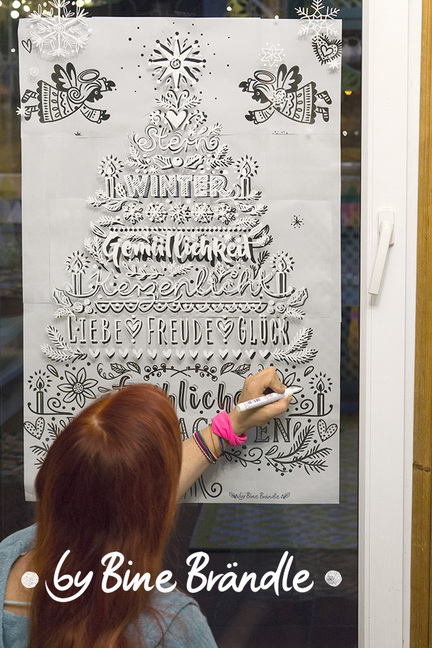 Stern
WINTER
Gemütlichkeit
Herzenlicht
LIEBE FREUDE GLÜCK
Fröhliche
EN
by Bine Brändle
by Bine Brändle